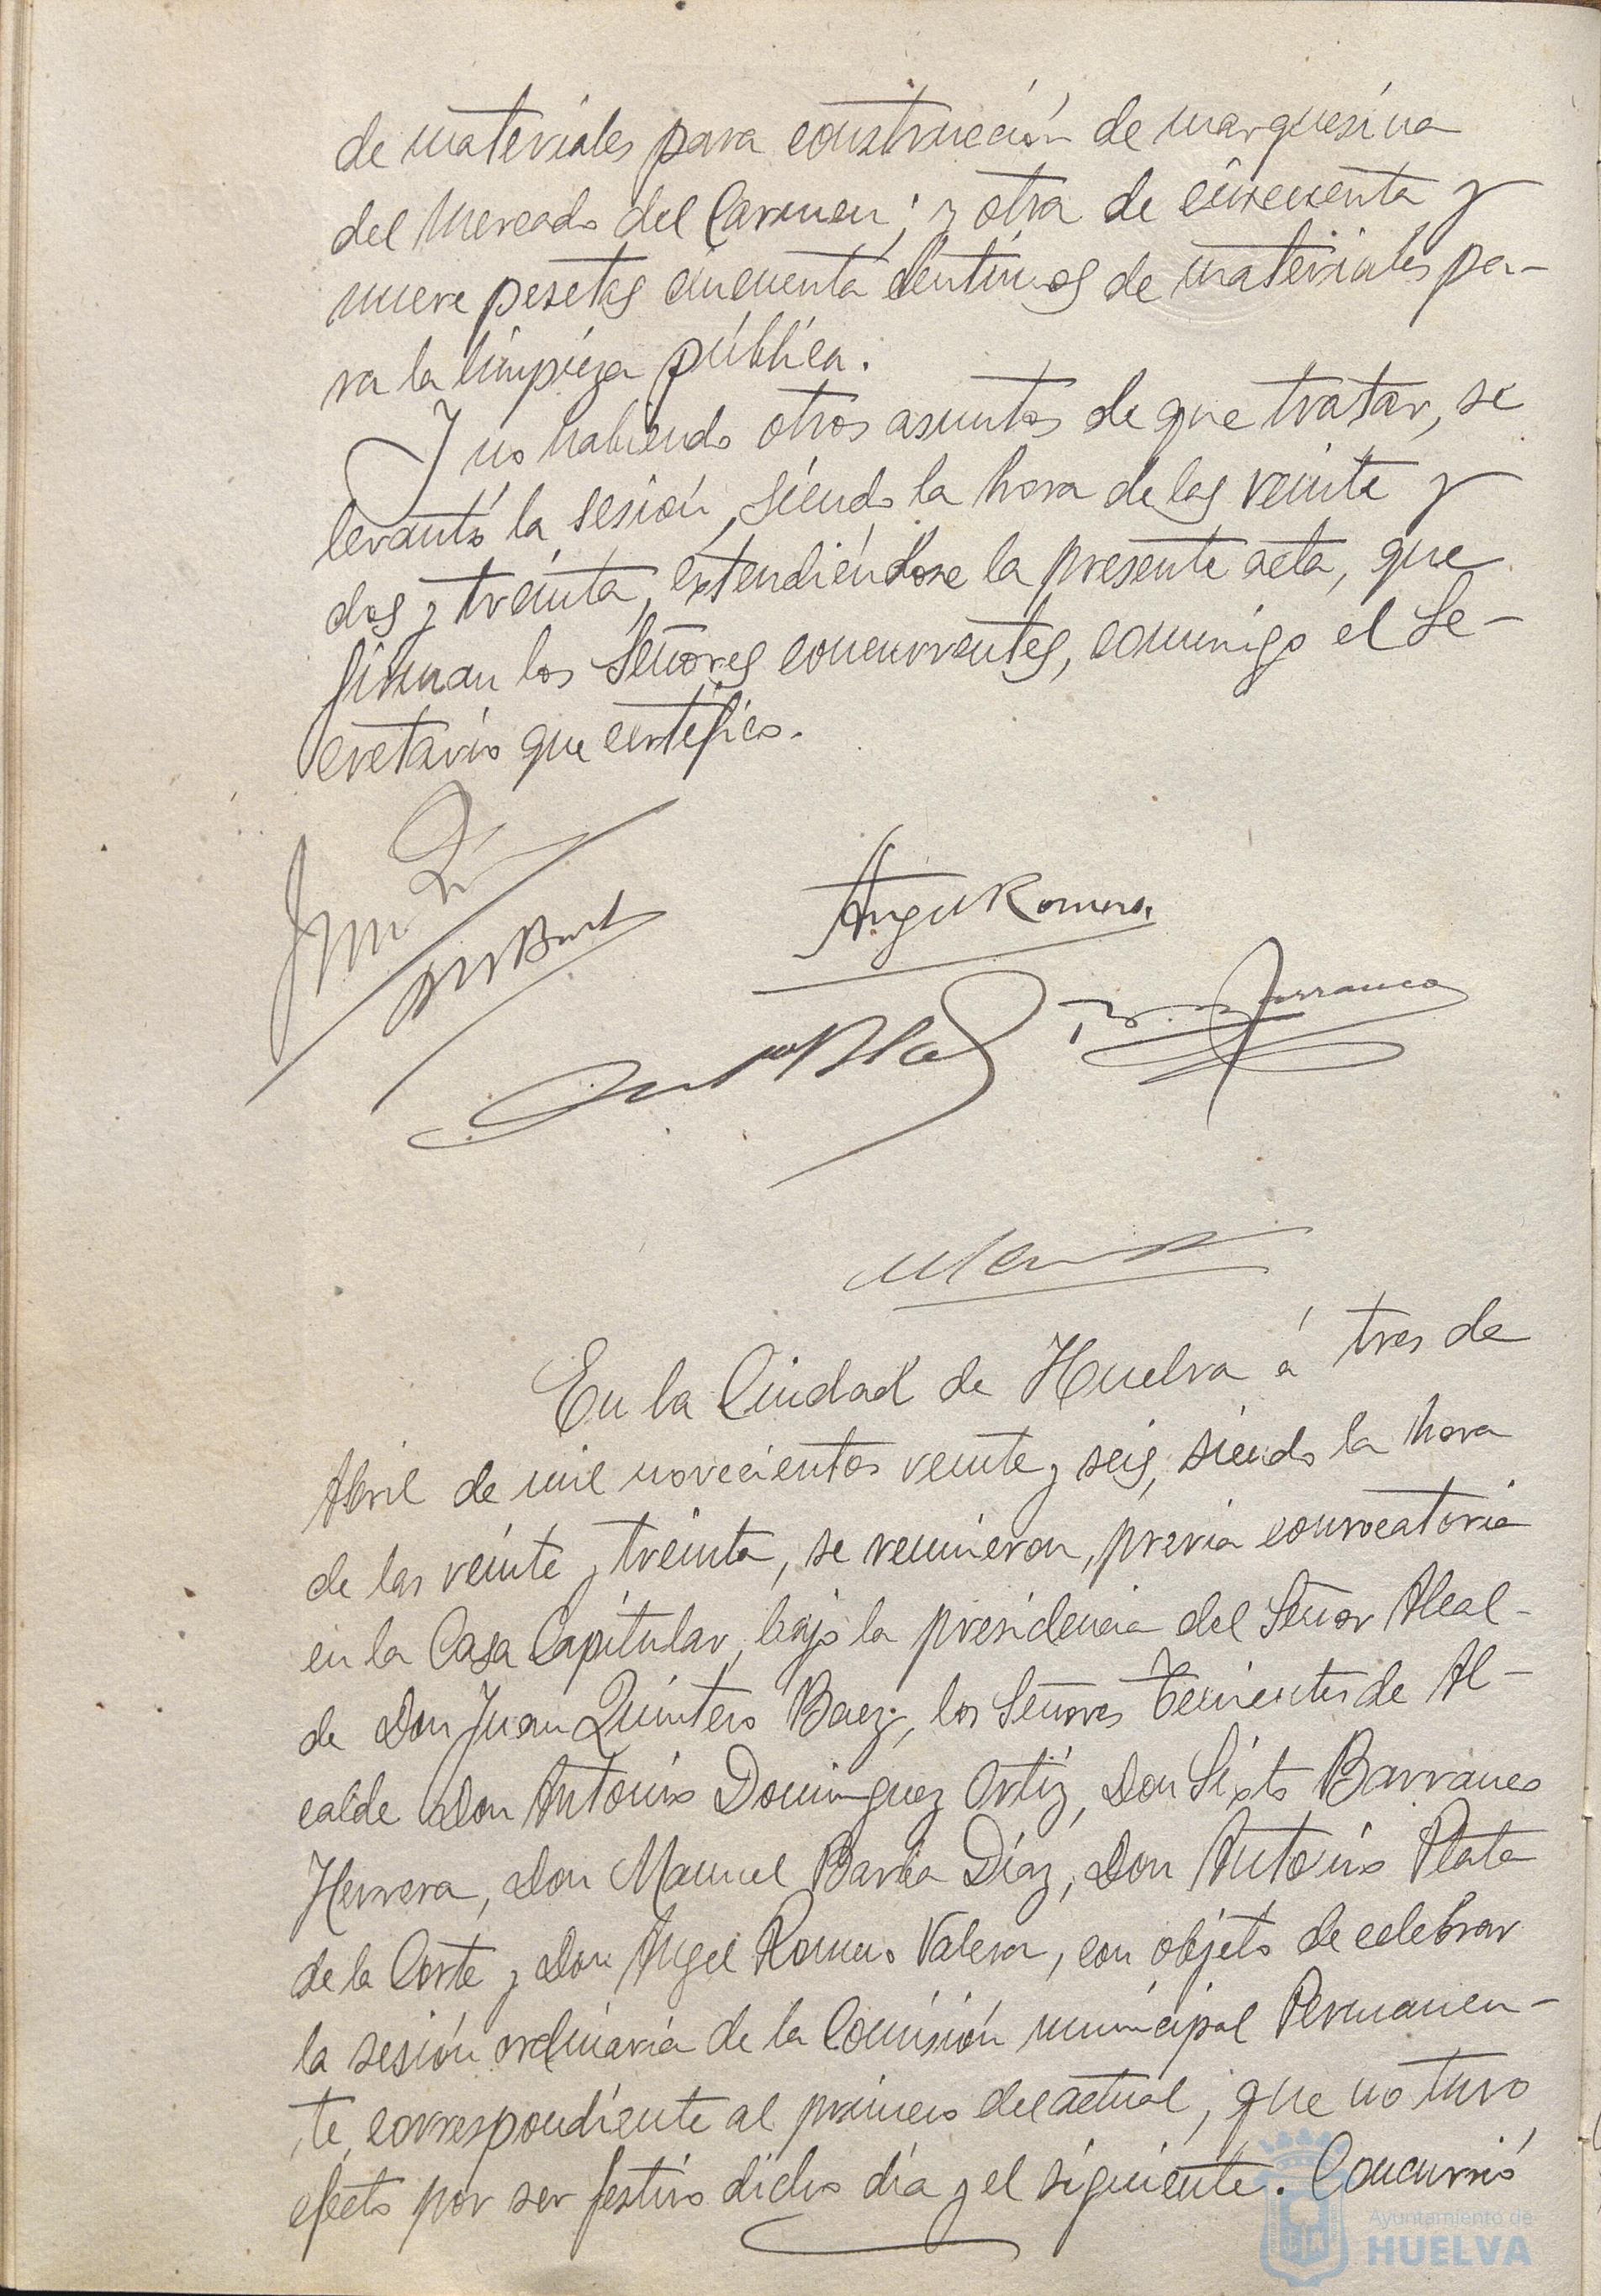 de materiales para construcción de marquesina
del Mercado del Carmen; y otra de cincuenta y
nueve pesetas cincuenta centimos de materiales pa-
ra la limpieza pública.
Y no habiendo otros asuntos de que tratar, se
levantó la sesión, siendo la hora de las veinte y
dos y treinta, extendiéndose la presente acta, que
firman los Señores concurrentes, conmigo el Se-
cretario que certifico.
Angel Romero
Barranco
En la Ciudad de Huelva á tres de
Abril de mil novecientos veinte y seis, siendo la hora
de las veinte y treinta, se reunieron, previa convocatoria
en la Casa Capitular, bajo la presidencia del Señor Alcal-
de Don Juan Quintero Baez, los Señores Tenientes de Al-
calde Don Antonio Dominguez Ortiz, Don Sixto Barranco
Herrera, Don Manuel Barba Díaz, Don Antonio Plata
de la Corte y Don Angel Romero Valera, con objeto de celebrar
la sesión ordinaria de la Comisión municipal Permanen-
te, correspondiente al primero del actual, que no tuvo
efecto por ser festivo dicho día y el siguiente. Concurrió
Ayuntamiento de
HUELVA